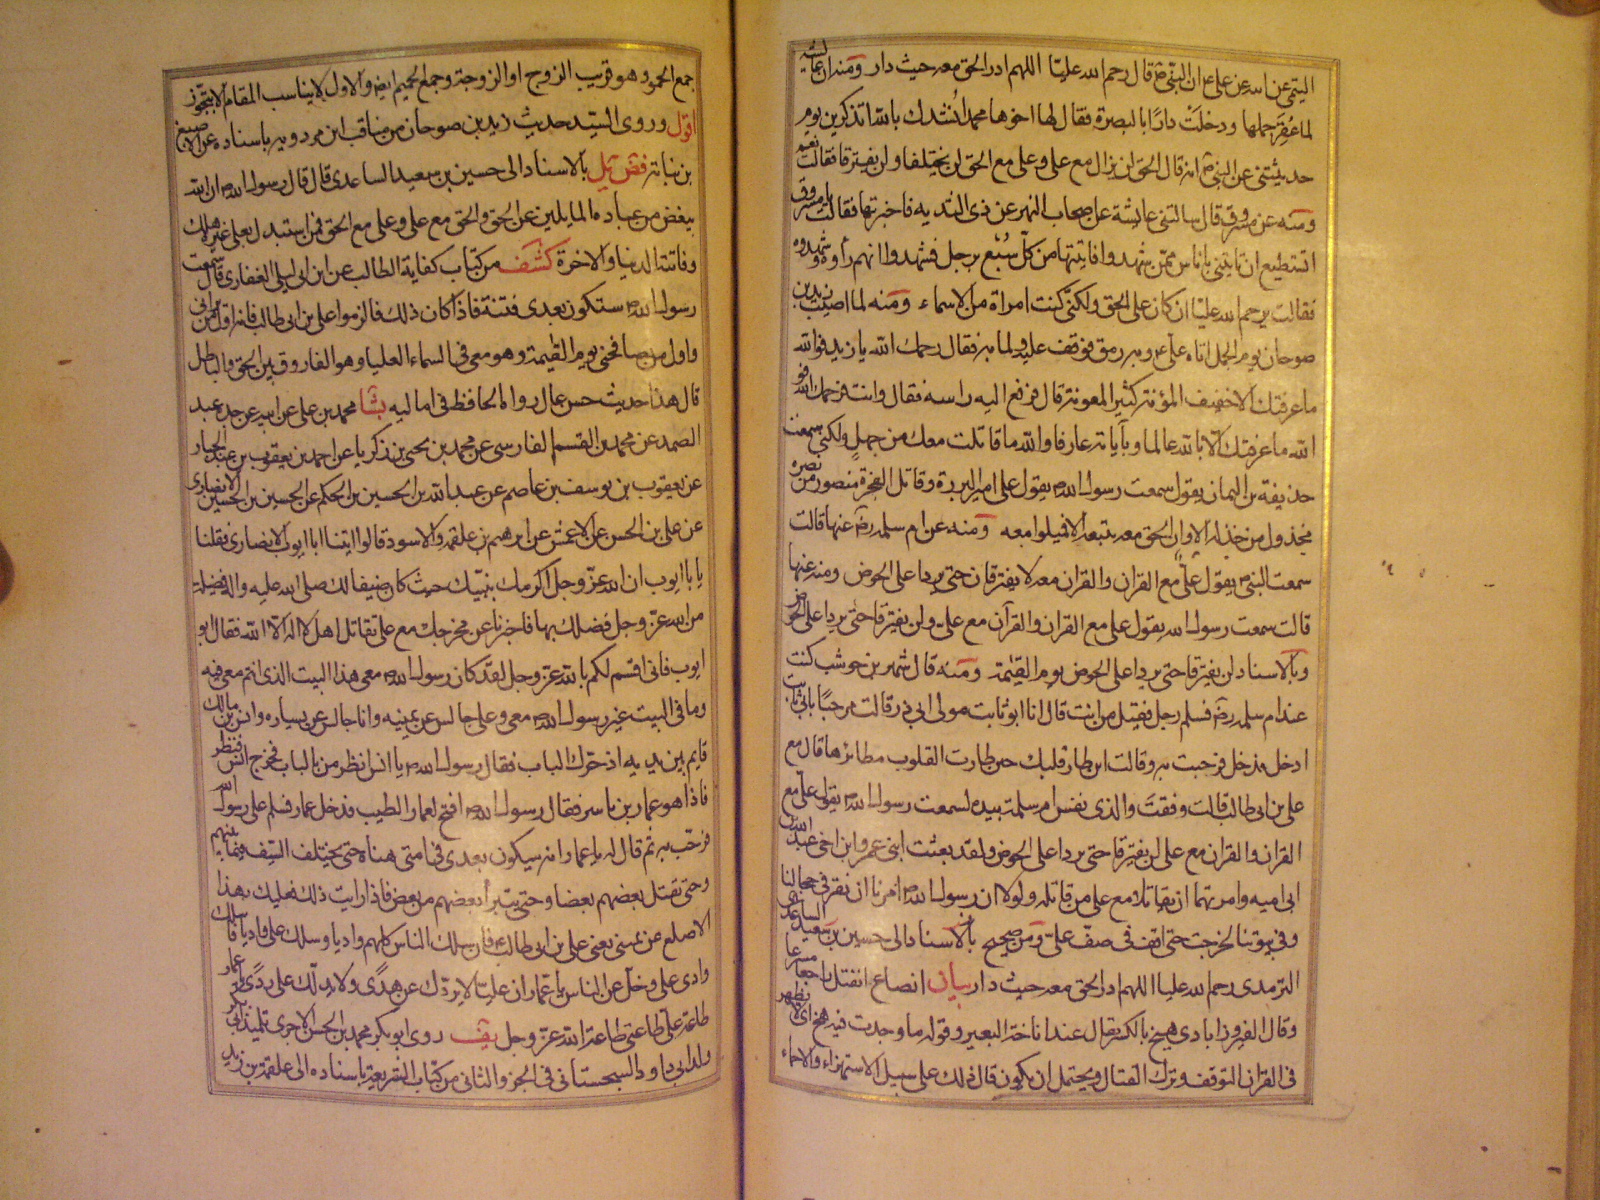 التيمى عن ابيه عن على ع ان النبى ص قال رحم الله عليا اللهم ادر الحق معه حيث دار ومنه ان عايشه
لما عقر جملها ودخلت دارا بالبصرة فقال لها اخوها محمد انشدك بالله اتذكرين يوم
حدثتنى عن النبى ص انه قال الحق لن يزال مع على وعلى مع الحق لن يختلفا ولن يفترقا فقالت نعم
ومنه عن مسروق قال سالتنى عايشة عن اصحاب النهر عن ذى الثديه فاخبرتها فقالت يا مسروق
اتستطيع ان تاتينى باناس ممن شهدوا فاتيتها من كل سبع برجل فشهدوا انهم راوه وشهدوه
فقالت يرحم الله عليا ان كان على الحق ولكنى كنت امراة من الاسماء ومنه لما اصيب زيد بن
صوحان يوم الجمل اتاه على ع وبه رمق فوقف عليه وهو لما به فقال رحمك الله يا زيد فوالله
ما عرفتك الا خفيف المؤنة كثير المعونة قال فرفع اليه راسه فقال وانت فرحمك الله فو
الله ما عرفتك الا بالله عالما وبآياته عارفا والله ما قاتلت معك من جهل ولكنى سمعت
حذيفة بن اليمان يقول سمعت رسول الله يقول على امير البررة وقاتل الفجرة منصور من نصره
مخذول من خذله الا وان الحق معه يتبعه الا فميلوا معه ومنه عن ام سلمه رض عنها قالت
سمعت النبى يقول على مع القران والقران معه لا يفترقان حتى يردا على الحوض ومنه عنها
قالت سمعت رسول الله يقول على مع القران والقرآن مع على ولن يفترقا حتى يردا على الحوض
وبالاسناد لن يفترقا حتى يردا على الحوض يوم القيمة ومنه قال شهر بن حوشب كنت
عند ام سلمه رض فسلم رجل فقيل من انت قال انا ابو ثابت مولى ابى ذر قالت مرحبا بابى ثابت
ادخل فدخل فرحبت به وقالت اين طار قلبك حين طارت القلوب مطائرها قال مع
على بن ابى طالب قالت وفقت والذى نفس ام سلمة بيده لسمعت رسول الله يقول على مع
القران والقران مع على لن يفترقا حتى يردا على الحوض ولقد بعثت ابنى عمر وابن اخى عبد الله
ابى اميه وامرتهما ان يقاتلا مع على من قاتله ولولا ان رسول الله امرنا ان نقر فى حجالنا
وفى بيوتنا لخرجت حتى اقف فى صف على ومن صحيح بالاسناد الى حسين بن سعيد الساعدى
الترمدى رحم الله عليا اللهم ادر الحق معه حيث دار بيان انصاع انفتل راجعا مسرعا
وقال الفيروزابادى هيخ بالكسر يقال عند اناخة البعير وقوله ما وجدت فيه
فى القران التوقف وترك القتال ويحتمل ان يكون قال ذلك على سبيل الاستهزاء
جمع الحمو وهو قريب الزوج او الزوجة وجمع لحميم ايضا والاول لا يناسب المقام الا بتجوز
اقول وروى السيد حديث زيد بن صوحان من مناقب ابن مردويه باسناده عن الاصبغ
بن نباته فض يل بالاسناد الى حسين بن سعيد الساعدى قال قال رسول الله ان الله
يبغض من عباده المايلين عن الحق والحق مع على وعلى مع الحق فمن استبدل بعلى غيره هلك
وفاتته الدنيا والاخرة كشف من كتاب كفاية الطالب عن ابن ابى ليلى الغفارى قال سمعت
رسول الله ستكون بعدى فتنة فاذا كان ذلك فالزموا على بن ابى طالب فانه اول من يرانى
واول من يصافحنى يوم القيمة وهو معى فى السماء العليا وهو الفاروق بين الحق والباطل
قال هذا حديث حسن عال رواه الحافظ فى اماليه بشا محمد بن على عن ابيه عن جده عبد
الصمد عن محمد بن القسم الفارسى عن محمد بن يحيى بن زكريا عن احمد بن يعقوب بن عبد الجبار
عن يعقوب بن يوسف بن عاصم عن عبد الله بن الحسين بن الحكم عن الحسين بن الحسن الانصارى
عن على بن الحسن عن الاعمش عن ابرهيم بن علقمه والاسود قالوا اتينا ابا ايوب الانصارى فقلنا
يا با ايوب ان الله عز وجل اكرمك بنبيك حيث كان ضيفا لك صلى الله عليه واله فضيلة
من الله عز وجل فضلك بها فاخبرنا عن مخرجك مع على تقاتل اهل لا اله الا الله فقال ابو
ايوب فانى اقسم لكم بالله عز وجل لقد كان رسول الله معى هذا البيت الذى انتم معى فيه
وما فى البيت غير رسول الله معى وعلى جالس عن يمينه وانا جالس عن يساره وانس بن مالك
قايم بين يديه اذ حرك الباب فقال رسول الله يا انس انظر من بالباب فخرج انس فنظر
فاذا هو عمار بن ياسر فقال رسول الله افتح لعمار الطيب فدخل عمار فسلم على رسول الله
فرحب به ثم قال له يا عمار انه سيكون بعدى فى امتى هناة حتى يختلف السيف فيما بينهم
وحتى يقتل بعضهم بعضا وحتى يتبرأ بعضهم من بعض فاذا رايت ذلك فعليك بهذا
الاصلع عن يمينى يعنى على بن ابى طالب فان سلك الناس كلهم واديا وسلك على واديا فاسلك
وادى على وخل عن الناس يا عمار ان عليا لا يردك عن هدى ولا يدلك على ردى يا عمار
طاعة على طاعتى وطاعتى طاعة الله عز وجل يف روى ابو بكر محمد بن الحسن الاجرى تلميذ ابى بكر
ولد ابى داود السجستانى فى الجزو الثانى من كتاب الشريعة باسناده الى علقمة بن زيد